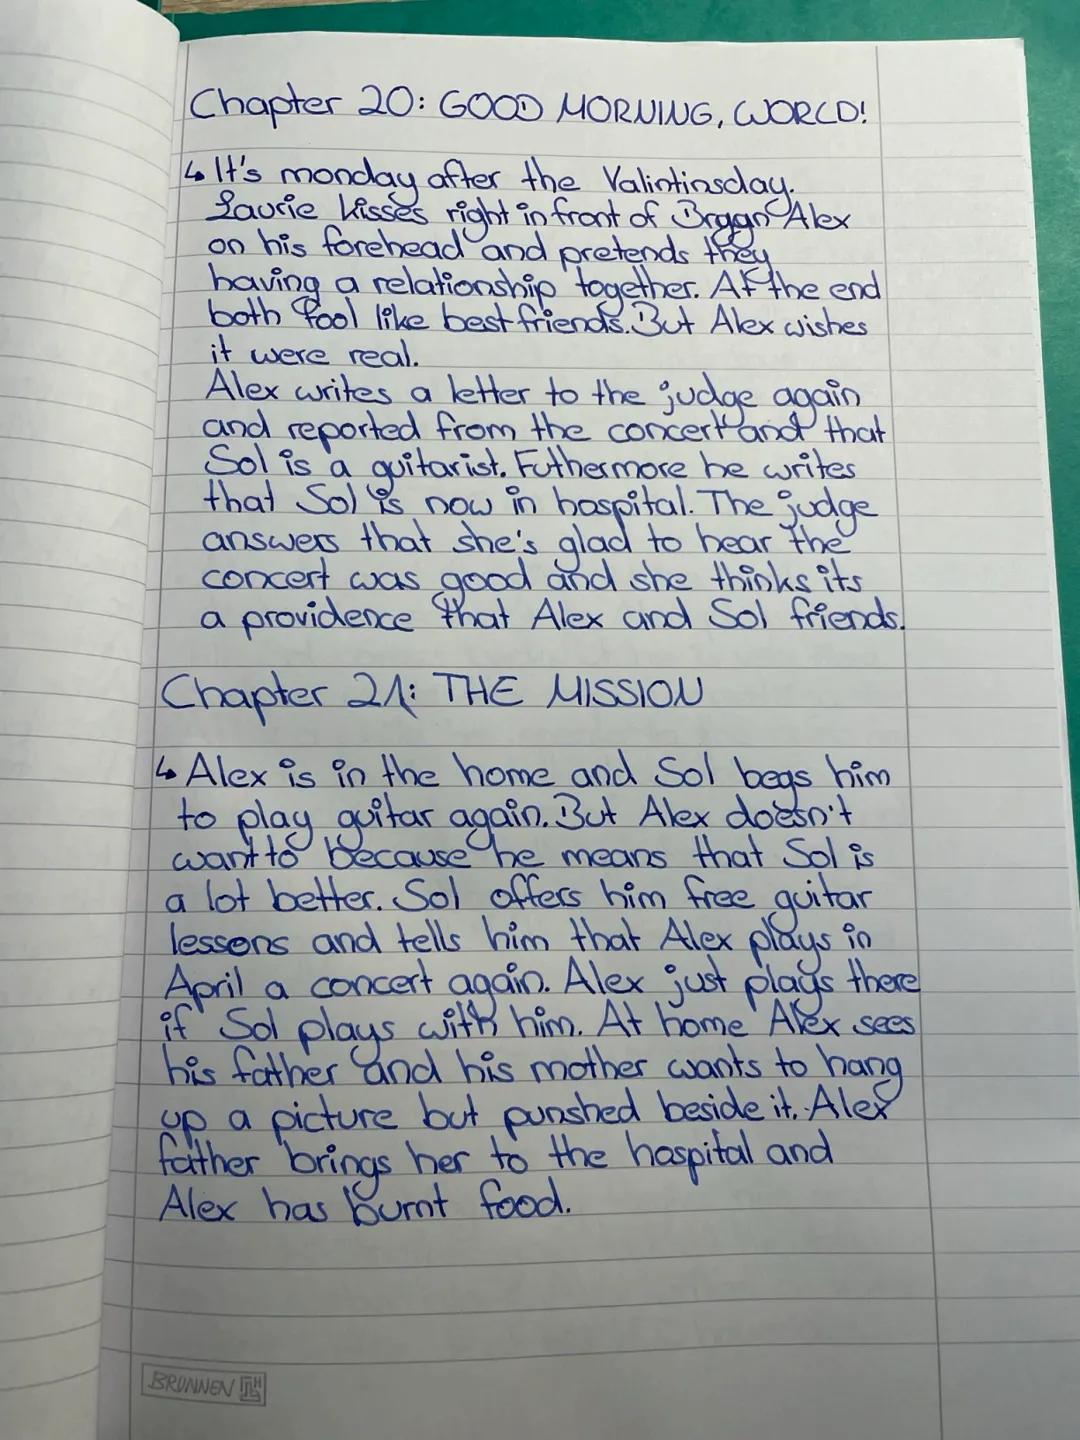 Chapter 20: GOOD MORNING, WORLD!
↳ It's monday after the Valintinsday.
Laurie kisses right in front of Bryan Alex
on his forehead and pretends they
having a relationship together. At the end
both fool like best friends. But Alex wishes
it were real.
Alex writes a letter to the judge again
and reported from the concert and that
Sol is a guitarist. Futhermore he writes
that Sol is now in hospital. The judge
answers that she's glad to hear the
concert was good and she thinks its
a providence that Alex and Sol friends.
Chapter 21: THE MISSION
↳ Alex is in the home and Sol begs him
to play guitar again. But Alex doesn't
want to because he means that Sol is
a lot better. Sol offers him free guitar
lessons and tells him that Alex plays in
April a concert again. Alex just plays there
if Sol plays with him. At home Alex sees
his father and his mother wants to hang
up a picture but punshed beside it. Alex
father brings her to the hospital and
Alex has burnt food.
BRUNNEN